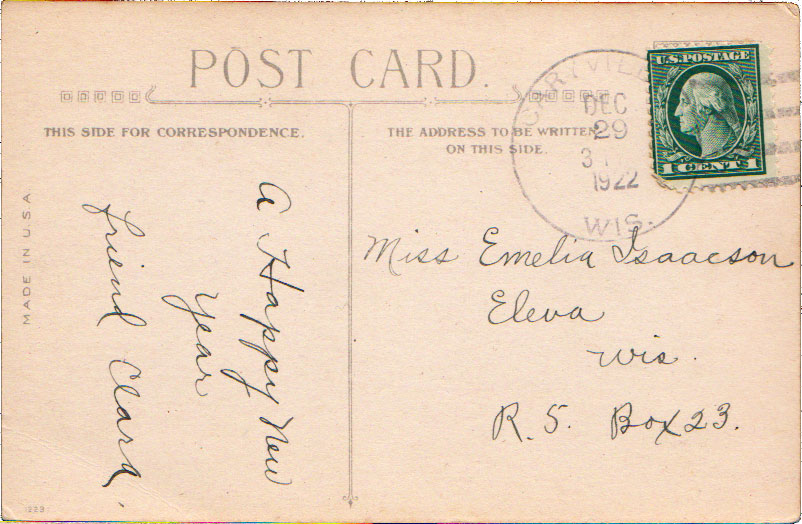 POST CARD.
THIS SIDE FOR CORRESPONDENCE.
THE ADDRESS TO BE WRITTEN
ON THIS SIDE.
DEC
29
3
1922
WIS.
U.S. POSTAGE
1 CENTS 1
MADE IN U.S.A
A Happy New
Year
friend Clara.
Miss Emelia Isaacson
Eleva
Wis.
R.5. Box 23.